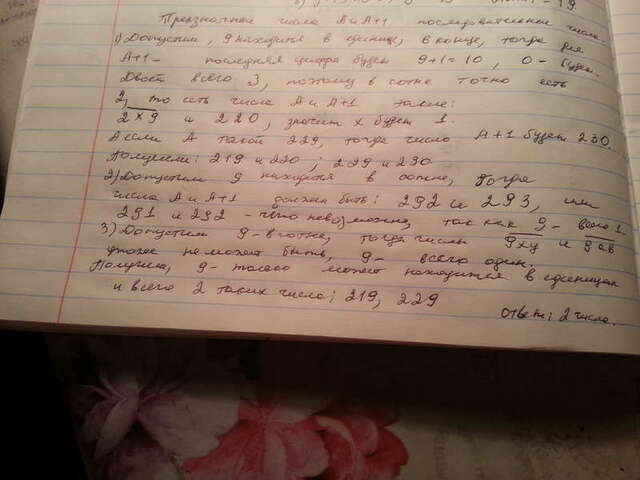 Трехзначные числа А и А+1 последовательные числа.
1) Допустим, 9 находится в единице, в конце, тогда для
А+1 - последняя цифра будет 9+1=10, 0 - будет.
Двоек всего 3, поэтому в сотне точно есть
2, то есть числа А и А+1 такие:
2×9 и 220, значит х будет 1.
А если А такой 229, тогда число А+1 будет 230.
Получили: 219 и 220; 229 и 230
2) Допустим 9 находится в сотне, Тогда
числа А и А+1 должны быть: 292 и 293, или
291 и 292 - что невозможно, так как 9 - всего 1.
3) Допустим 9-в сотне, тогда числа 9xy и 9ав
тоже не может быть, 9 - всего один.
Получили, 9 - только может находится в единицах
и всего 2 таких числа: 219, 229
Ответ: 2 числа.